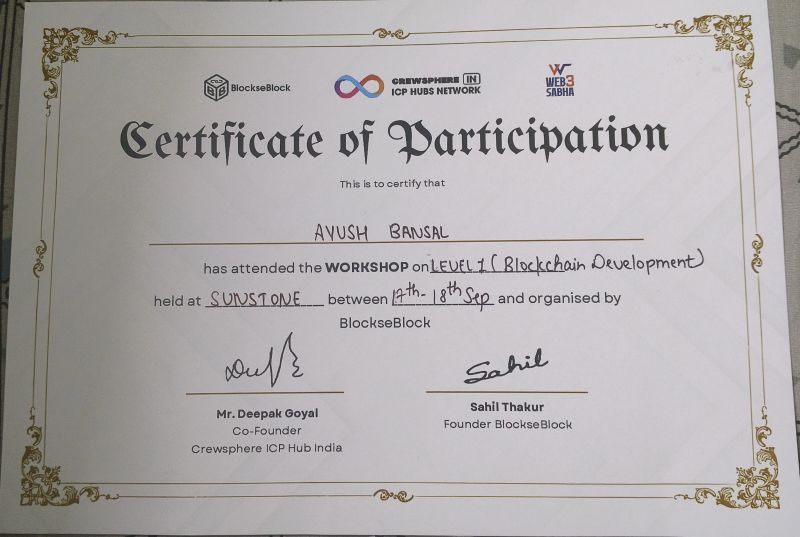 BlockseBlock
CREWSPHERE IN
ICP HUBS NETWORK
WEB3
SABHA
Certificate of Participation
This is to certify that
AYUSH BANSAL
has attended the WORKSHOP on LEVEL 1 (Blockchain Development)
held at SUNSTONE between 17th - 18th Sep and organised by
BlockseBlock
Sahil
Mr. Deepak Goyal
Co-Founder
Crewsphere ICP Hub India
Sahil Thakur
Founder BlockseBlock